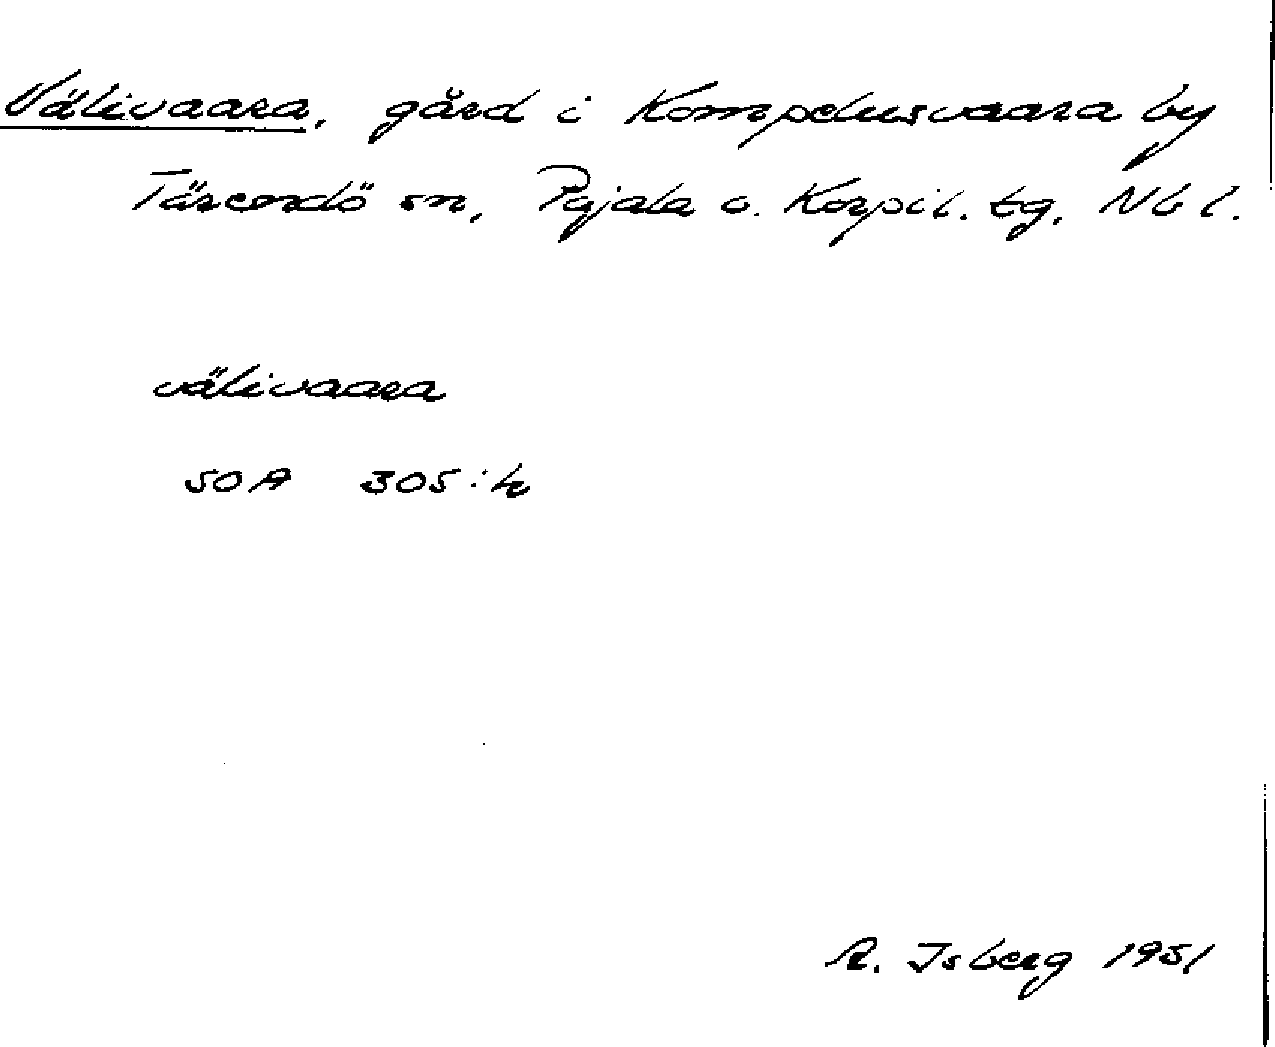 Välivaara, gård i Kompelusvaara by
Tärendö sn, Pajala o. Korpil. tg, Nb l.
välivaara
SOA 305:h
R. Isberg 1951